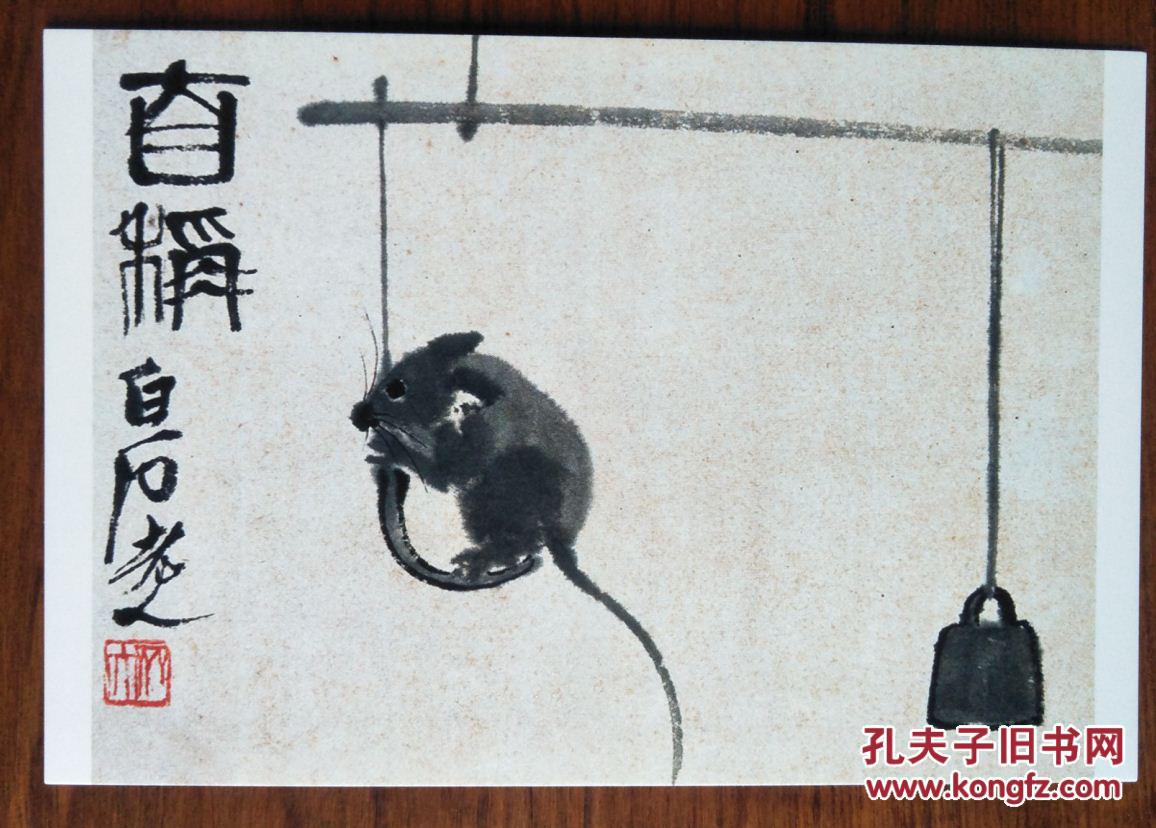 自稱
白石老人
孔夫子旧书网
www.kongfz.com